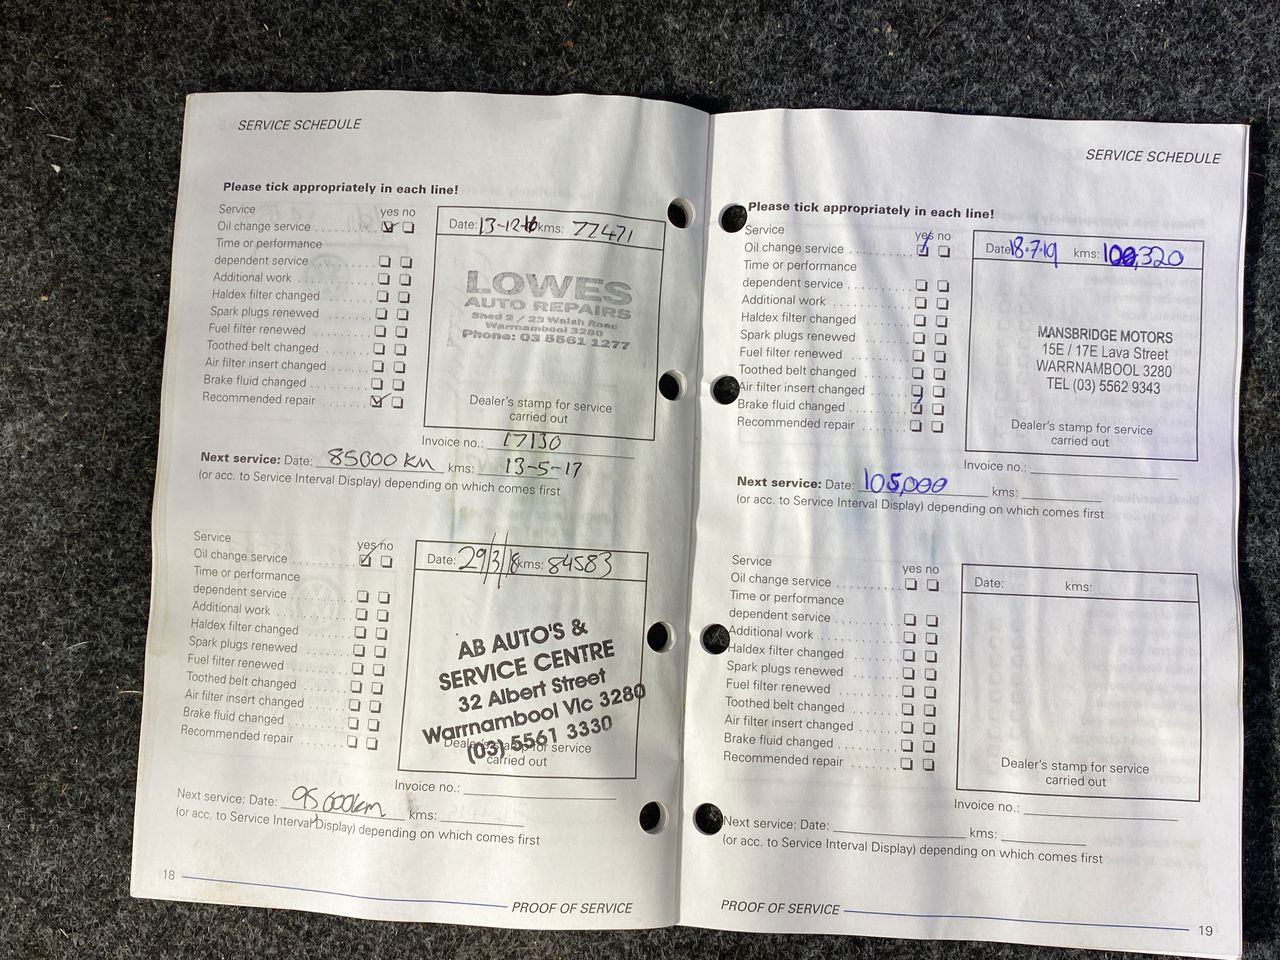 SERVICE SCHEDULE
Please tick appropriately in each line!
Service yes no
Oil change service
Time or performance
dependent service
Additional work
Haldex filter changed
Spark plugs renewed
Fuel filter renewed
Toothed belt changed
Air filter insert changed
Brake fluid changed
Recommended repair
Date: 13-12-16 kms: 77471
LOWES
AUTO REPAIRS
Shed 2 / 23 Walsh Road
Warrnambool 3280
Phone: 03 5561 1277
Dealer's stamp for service
carried out
Invoice no.: 17130
Next service: Date: 85000 KM kms: 13-5-17
(or acc. to Service Interval Display) depending on which comes first
Service yes no
Oil change service
Time or performance
dependent service
Additional work
Haldex filter changed
Spark plugs renewed
Fuel filter renewed
Toothed belt changed
Air filter insert changed
Brake fluid changed
Recommended repair
Date: 29/3/18 kms: 84583
AB AUTO'S &
SERVICE CENTRE
32 Albert Street
Warrnambool Vic 3280
(03) 5561 3330
Dealer's stamp for service
carried out
Invoice no.:
Next service: Date: 95,000km kms:
(or acc. to Service Interval Display) depending on which comes first
18
PROOF OF SERVICE
SERVICE SCHEDULE
Please tick appropriately in each line!
Service yes no
Oil change service
Time or performance
dependent service
Additional work
Haldex filter changed
Spark plugs renewed
Fuel filter renewed
Toothed belt changed
Air filter insert changed
Brake fluid changed
Recommended repair
Date 18.7.19 kms: 100,320
MANSBRIDGE MOTORS
15E / 17E Lava Street
WARRNAMBOOL 3280
TEL (03) 5562 9343
Dealer's stamp for service
carried out
Invoice no.:
Next service: Date: 105,000 kms:
(or acc. to Service Interval Display) depending on which comes first
Service yes no
Oil change service
Time or performance
dependent service
Additional work
Haldex filter changed
Spark plugs renewed
Fuel filter renewed
Toothed belt changed
Air filter insert changed
Brake fluid changed
Recommended repair
Date: kms:
Dealer's stamp for service
carried out
Invoice no.:
Next service: Date: kms:
(or acc. to Service Interval Display) depending on which comes first
PROOF OF SERVICE
19